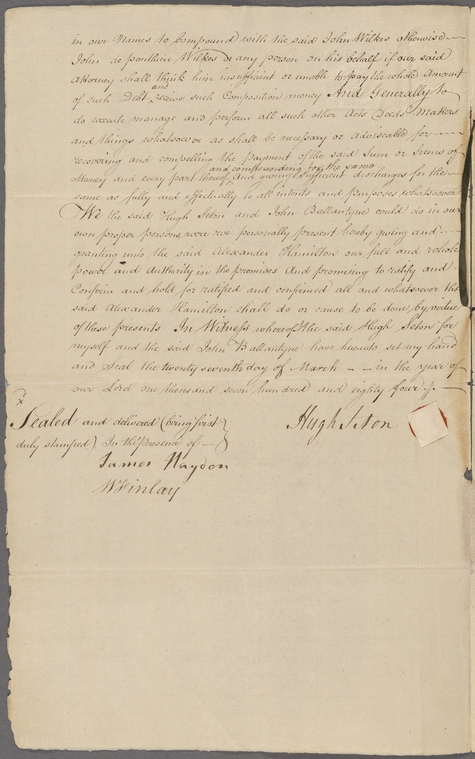 in our Names to Compound with the said John Wilkes otherwise
John de ponthieu Wilkes or any person on his behalf if our said
Attorney shall think him insufficient or unable to pay the whole Amount
of such Debt and receive such Composition money And Generally to
do execute manage and perform all such other Acts Deeds Matters
and things whatsoever as shall be necessary or adviseable for
recovering and compelling the payment of the said Sum or Sums of
Money and every part thereof and compounding for the same and giving sufficient discharges for the
same as fully and effectually to all intents and purposes whatsoever
We the said Hugh Seton and John Ballantyne could do in our
own proper persons were we personally present hereby giving and
granting unto the said Alexander Hamilton our full and whole
power and Authority in the premises And promising to ratify and
Confirm and hold for ratified and confirmed all and whatsoever the
said Alexander Hamilton shall do or cause to be done by virtue
of these presents In Witness whereof the said Hugh Seton for
myself and the said John Ballantyne have hereunto set my hand
and Seal the twenty seventh day of March in the year of
our Lord one thousand seven hundred and eighty four
x
Sealed and delivered (being first
duly stamped) In the presence of
Hugh Seton
James Haydon
W Finlay